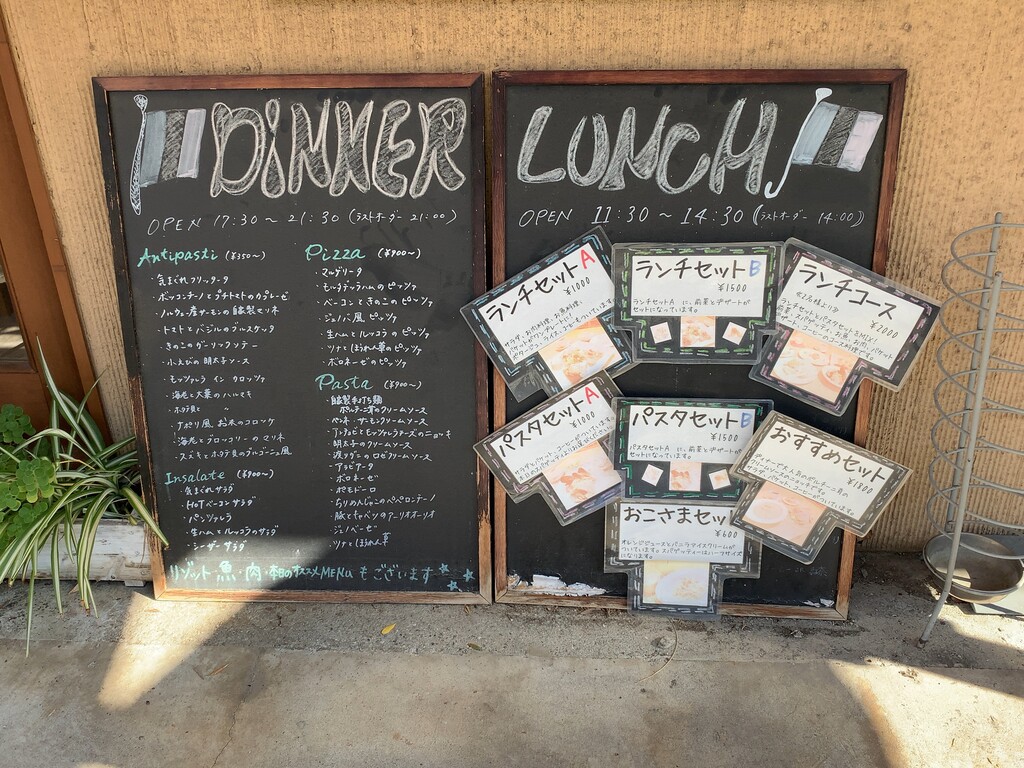 DINNER
OPEN 17:30 ～ 21:30 (ラストオーダー 21:00)
Antipasti (¥350～)
気まぐれフリッタータ
ボッコンチーノとプチトマトのカプレーゼ
ノルウェー産サーモンの自家製マリネ
トマトとバジルのブルスケッタ
きのこのガーリックソテー
小えびの明太子ソース
モッツァレラ イン カロッツァ
海老と大葉のハルマキ
ホタテ貝と 〃
ナポリ風 お米のコロッケ
海老とブロッコリーのマリネ
スズキとホタテ貝のブルゴーニュ風
Insalate (¥900～)
気まぐれサラダ
HOTベーコンサラダ
パンツァレラ
生ハムとルッコラのサラダ
シーザーサラダ
Pizza (¥900～)
マルゲリータ
モルタデッラハムのピッツァ
ベーコンときのこのピッツァ
ジェノバ風ピッツァ
生ハムとルッコラのピッツァ
ツナとほうれん草のピッツァ
ボロネーゼのピッツァ
Pasta (¥900～)
自家製手打ち麺
ポルチーニ茸のクリームソース
ペンネ サーモンクリームソース
明太子のクリームソース
アラビアータ
ボロネーゼ
ポモドーロ
ちりめんじゃこのペペロンチーノ
豚とキャベツのアーリオオーリオ
ジェノベーゼ
ツナとほうれん草
リゾット・魚・肉・本日のオススメMENUもございます
LUNCH
OPEN 11:30 ～ 14:30 (ラストオーダー 14:00)
ランチセットA
¥1000
サラダ、お肉料理、お魚料理、
ランチセットB
¥1500
ランチセットA に、前菜とデザートが
セットになっています。
ランチコース
¥2000
パスタセットA
¥1000
パスタセットB
¥1500
パスタセットA に、前菜とデザートが
セットになっています。
おすすめセット
¥1800
おこさまセッ
¥600
オレンジジュースとバニラアイスクリームが
ついています。スパゲッティーはハーフサイズ
になります。